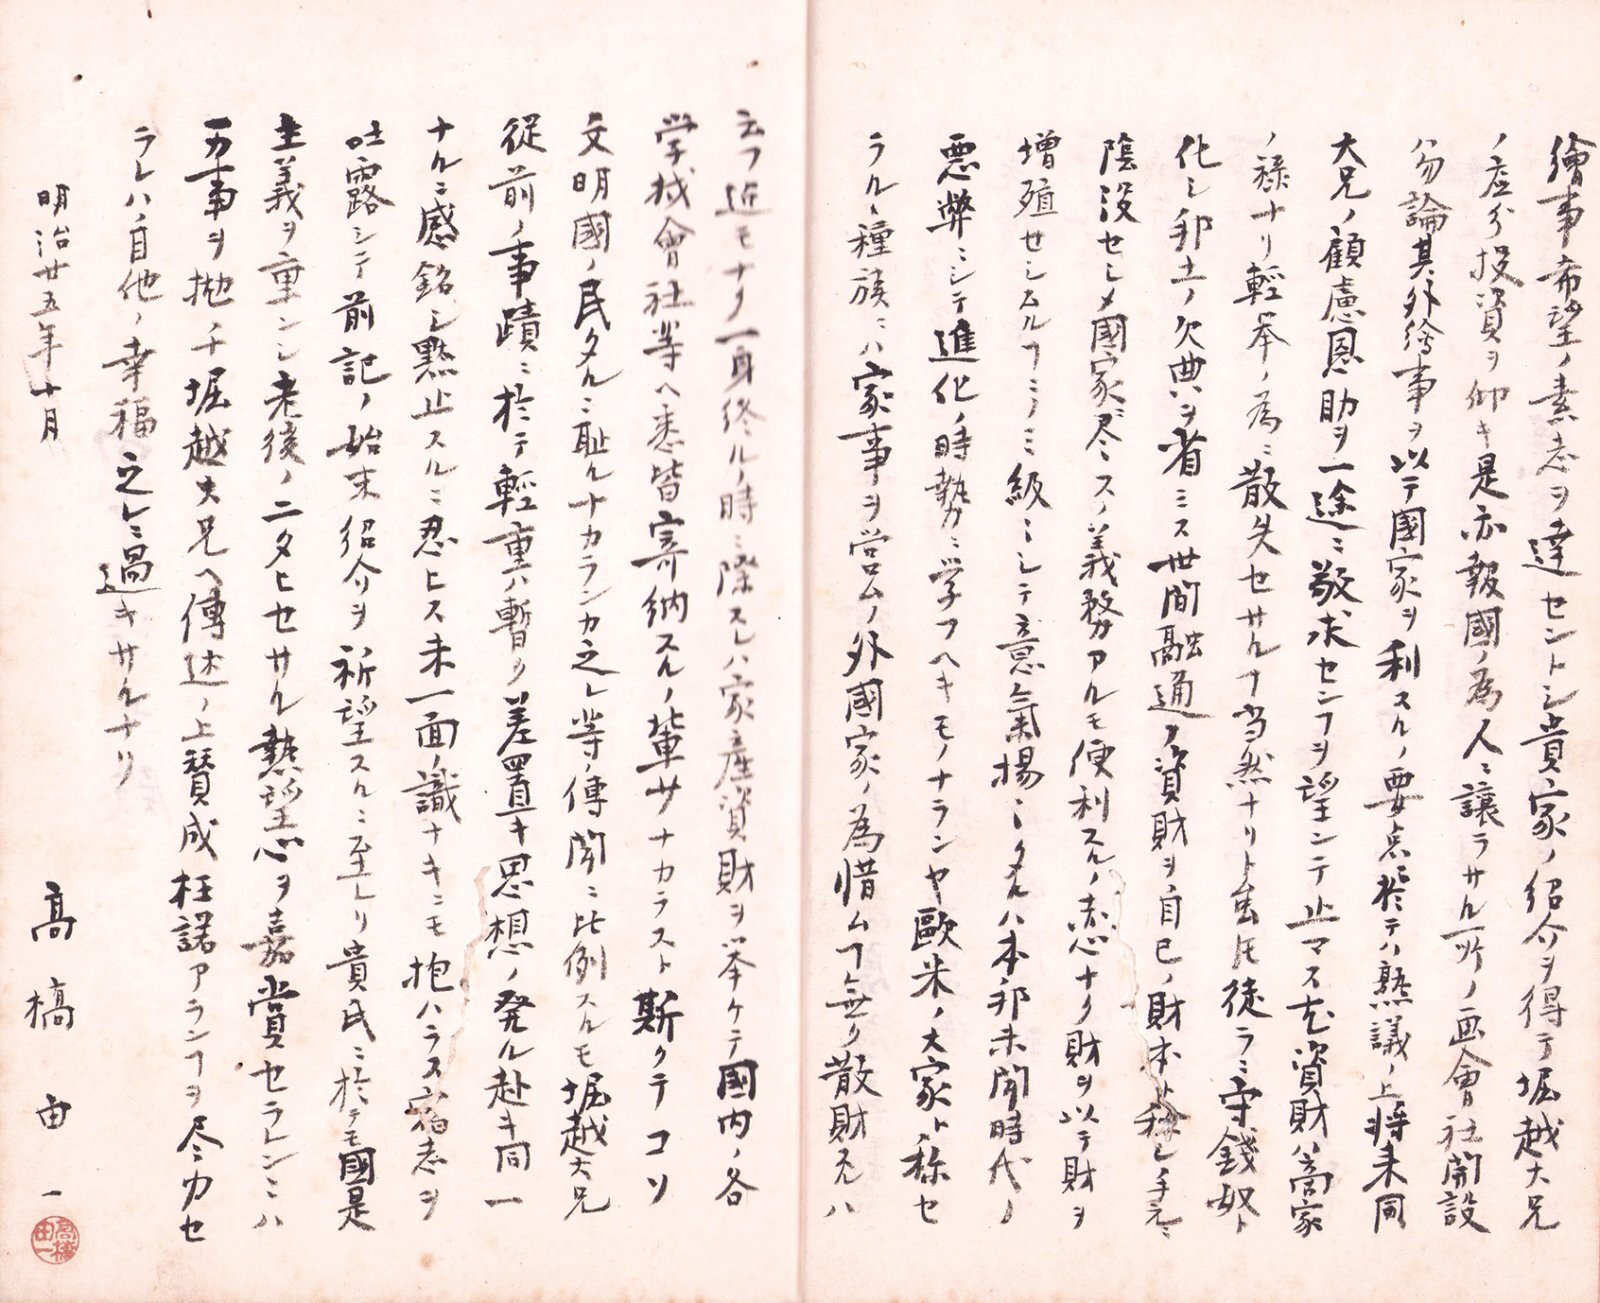 繪事希望ノ素志ヲ達セントシ貴家ノ紹介ヲ得テ堀越大兄
ノ応分投資ヲ仰キ是亦報國ノ為人ニ讓ラサル一所ノ画會社開設
ハ勿論其外繪事ヲ以テ國家ヲ利スルノ要点ニ於テハ熟議ノ上将来同
大兄ノ顧慮恩助ヲ一途ニ敬求センヿヲ望ンテ止マス元資財ハ高家
ノ禄ナリ輕挙ノ為ニ散失セサルヿ当然ナリト虽𪜈徒ラニ守錢奴ト
化シ邦土ノ欠典ヲ省ミス世間融通ノ資財ヲ自己ノ財本ト称シ手元ニ
陰没セシメ國家ニ尽スノ義務アルモ便利スルノ志ナク財ヲ以テ財ヲ
増殖セシムルヿニノミ級々シテ意氣揚々タルハ本邦未開時代ノ
悪弊ニシテ進化ノ時勢ニ学フヘキモノナランヤ歐米ノ大家ト称セ
ラルヽ種族ニハ家事ヲ営ムノ外國家ノ為惜ムヿ無ク散財スルハ
云フ迄モナク一身終ルノ時ニ際スレハ家産資財ヲ挙ケテ國内ノ各
学校會社等ヘ悉皆寄納スルノ輩サナカラスト斯クテコソ
文明國ノ民タルニ恥ルナカランカ之レ等ノ傳聞ニ比例スルモ堀越大兄
従前ノ事蹟ニ於テ輕重ハ暫ク差置キ思想ノ発ル赴キ同一
ナルニ感銘シ黙止スルニ忍ヒス未一面ノ識ナキニモ抱ハラス宿志ヲ
吐露シテ前記ノ始末紹介ヲ祈望スルニ至レリ貴氏ニ於テモ國是
主義ヲ重ンシ老後ノ二タヒセサル熱望心ヲ嘉賞セラレンニハ
万事ヲ抛チ堀越大兄ヘ傳述ノ上賛成枉諾アランヿヲ尽力セ
ラレハ自他ノ幸福之レニ過キサルナリ
明治廿五年十月
高橋由一
高橋由一